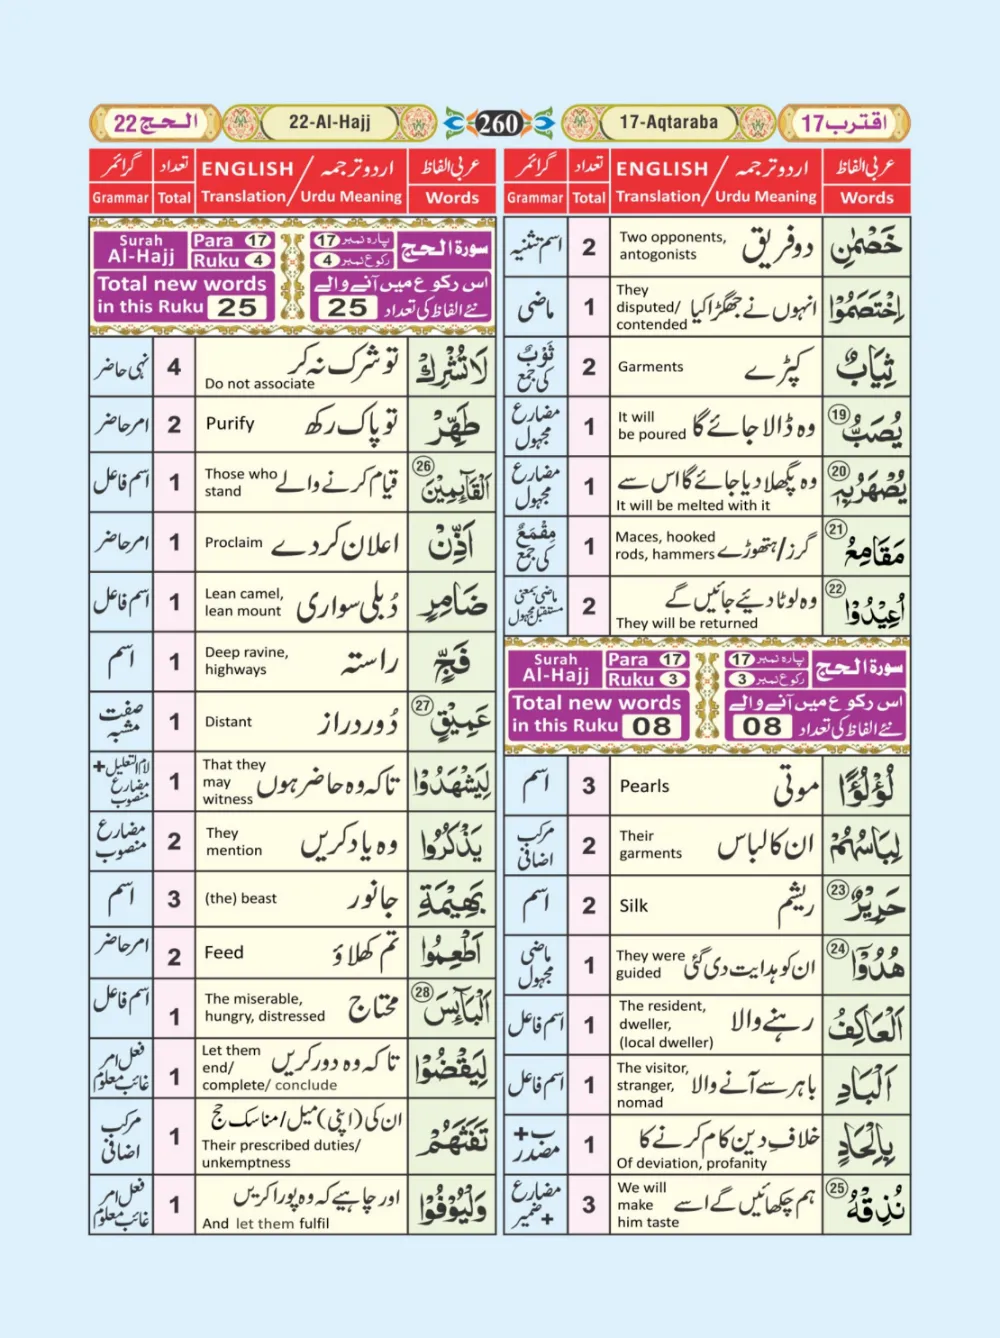 اقترب 17
17-Aqtaraba
260
22-Al-Hajj
22 الحج
عربی الفاظ ENGLISH / اردو ترجمہ تعداد گرائمر
Words Translation / Urdu Meaning Total Grammar
خَصْمٰنِ دو فریق Two opponents, antogonists 2 اسم تثنیہ
اِخْتَصَمُوْا انہوں نے جھگڑا کیا They disputed/ contended 1 ماضی
ثِيَابٌ کپڑے Garments 2 ثَوْبٌ کی جمع
يُصَبُّ ⑲ وہ ڈالا جائے گا It will be poured 1 مضارع مجہول
يُصْهَرُ بِهٖ ⑳ وہ پگھلا دیا جائے گا اس سے It will be melted with it 1 مضارع مجہول
مَقَامِعُ ㉑ گرز/ہتھوڑے Maces, hooked rods, hammers 1 مِقْمَعٌ کی جمع
اُعِيْدُوْا ㉒ وہ لوٹا دیئے جائیں گے They will be returned 2 ماضی بمعنی مستقبل مجہول
سورة الحج پارہ نمبر 17 رکوع نمبر 3 Para 17 Ruku 3 Surah Al-Hajj
اس رکوع میں آنے والے نئے الفاظ کی تعداد 08 Total new words in this Ruku 08
لُؤْلُؤًا موتی Pearls 3 اسم
لِبَاسُهُمْ ان کا لباس Their garments 2 مرکب اضافی
حَرِيْرٌ ㉓ ریشم Silk 2 اسم
هُدُوْٓا ㉔ ان کو ہدایت دی گئی They were guided 1 ماضی مجہول
اَلْعَاكِفُ رہنے والا The resident, dweller, (local dweller) 1 اسم فاعل
اَلْبَادِ باہر سے آنے والا The visitor, stranger, nomad 1 اسم فاعل
بِاِلْحَادٍ خلافِ دین کام کرنے کا Of deviation, profanity 1 ب+ مصدر
نُذِقْهُ ㉕ ہم چکھائیں گے اسے We will make him taste 3 مضارع + ضمیر
عربی الفاظ ENGLISH / اردو ترجمہ تعداد گرائمر
Words Translation / Urdu Meaning Total Grammar
سورة الحج پارہ نمبر 17 رکوع نمبر 4 Para 17 Ruku 4 Surah Al-Hajj
اس رکوع میں آنے والے نئے الفاظ کی تعداد 25 Total new words in this Ruku 25
لَا تُشْرِكْ تو شرک نہ کر Do not associate 4 نہی حاضر
طَهِّرْ تو پاک رکھ Purify 2 امر حاضر
اَلْقَآئِمِيْنَ ㉖ قیام کرنے والے Those who stand 1 اسم فاعل
اَذِّنْ اعلان کر دے Proclaim 1 امر حاضر
ضَامِرٍ دُبلی سواری Lean camel, lean mount 1 اسم فاعل
فَجٍّ راستہ Deep ravine, highways 1 اسم
عَمِيْقٍ ㉗ دُور دراز Distant 1 صفت مشبہ
لِيَشْهَدُوْا تاکہ وہ حاضر ہوں That they may witness 1 لام التعلیل+ مضارع منصوب
يَذْكُرُوا وہ یاد کریں They mention 2 مضارع منصوب
بَهِيْمَةِ جانور (the) beast 3 اسم
اَطْعِمُوا تم کھلاؤ Feed 2 امر حاضر
اَلْبَآئِسَ ㉘ محتاج The miserable, hungry, distressed 1 اسم فاعل
لِيَقْضُوْا تاکہ وہ دور کریں Let them end/ complete/ conclude 1 فعل امر غائب معلوم
تَفَثَهُمْ ان کی (اپنی) میل/مناسک حج Their prescribed duties/ unkemptness 1 مرکب اضافی
وَلْيُوْفُوْا اور چاہیے کہ وہ پورا کریں And let them fulfil 1 فعل امر غائب معلوم